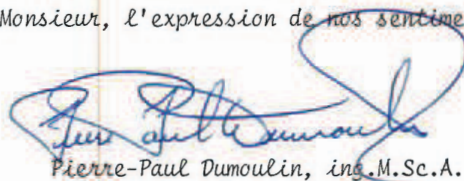 Monsieur, l'expression de nos sentime
Pierre Paul Dumoulin
Pierre-Paul Dumoulin, ing.M.Sc.A.